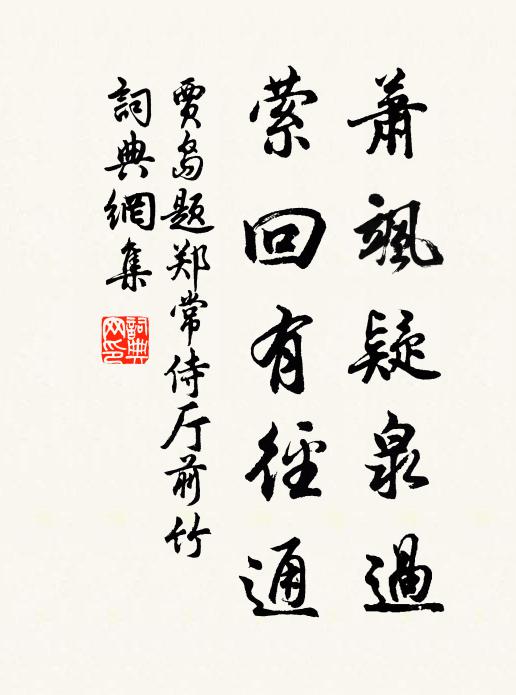 蕭颯疑泉過
萦回有徑通
贾岛题郑常侍厅前竹
詞典網集
詞典网印